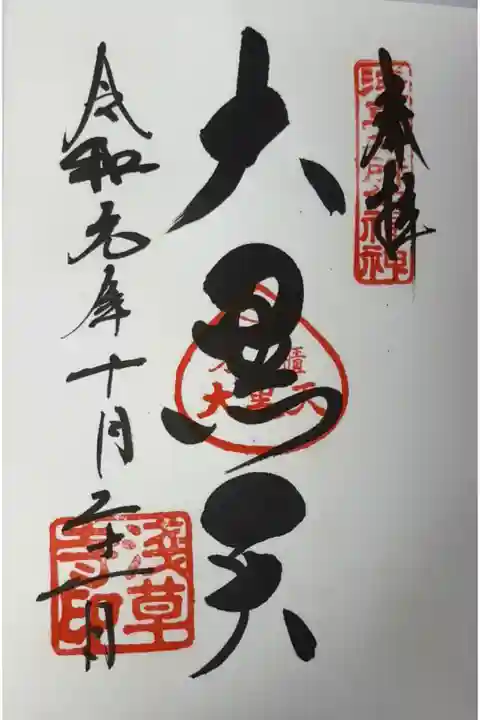 奉拝
大黒天
櫃
大黒天
令和元年十月二十一日
淺草
寺印